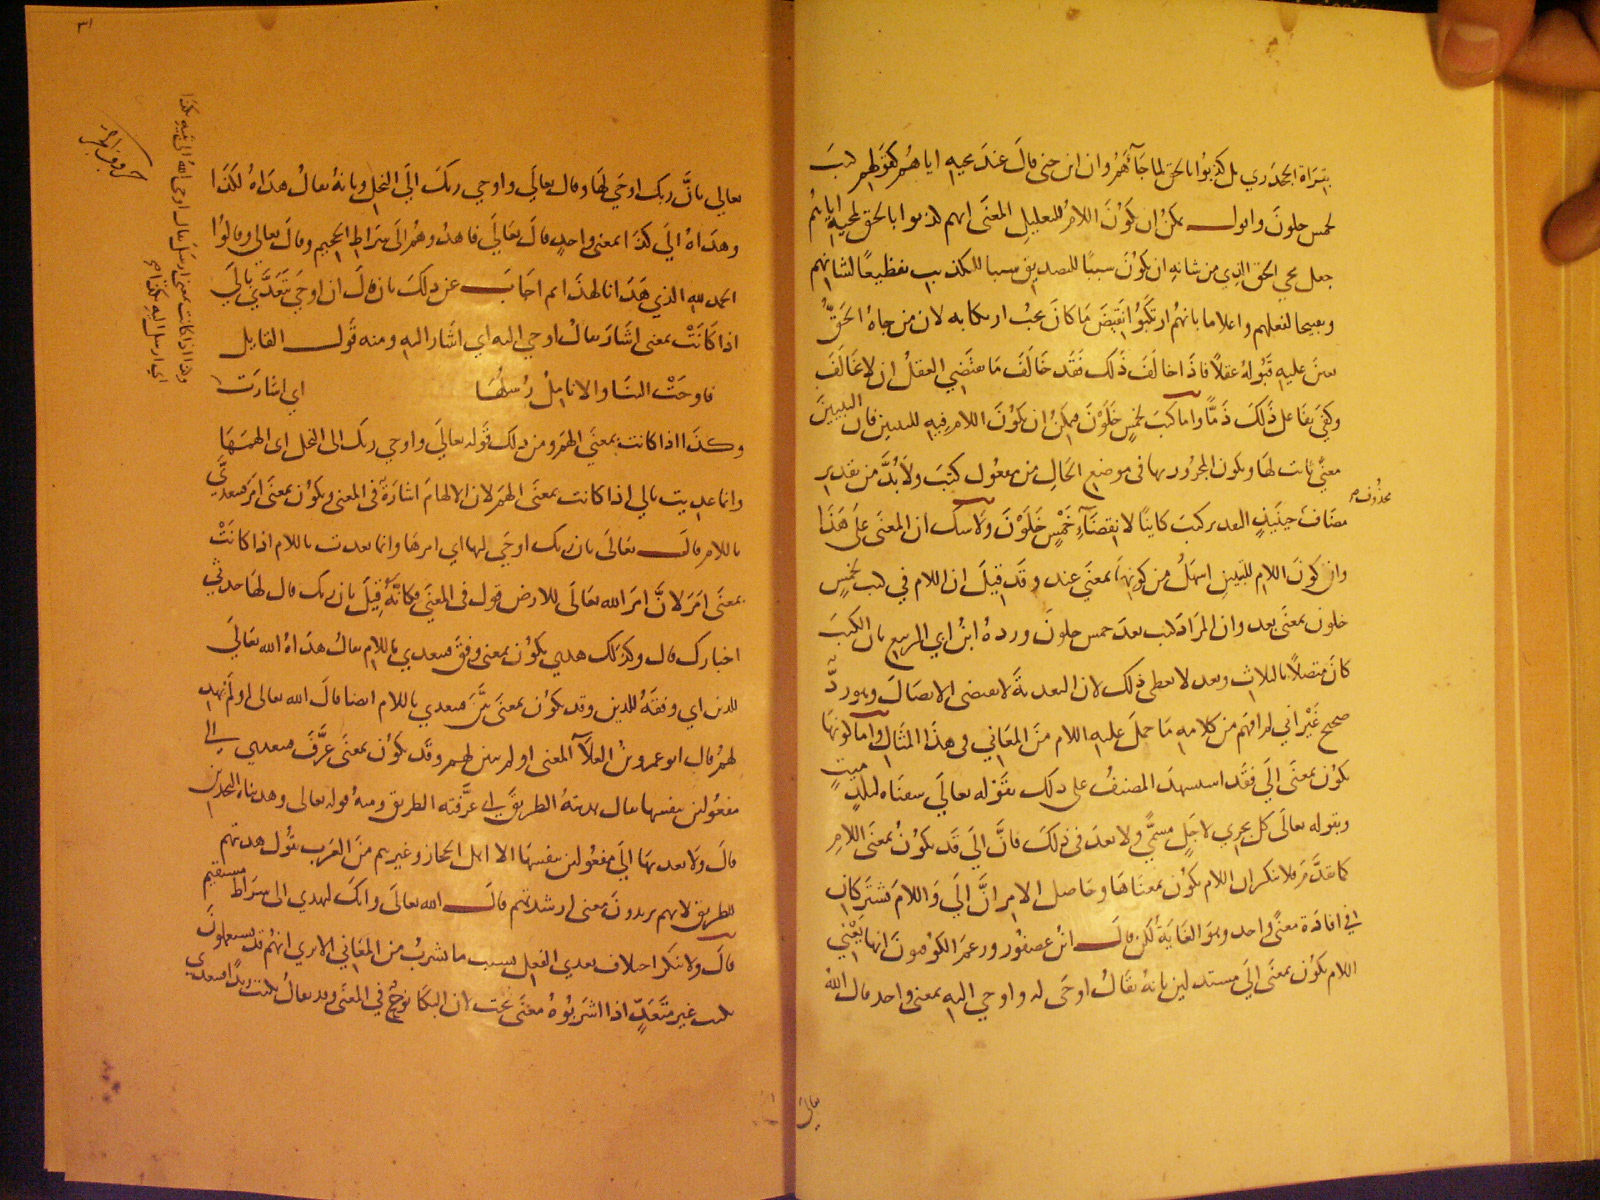 بقراءة الجحدري بل كذبوا بالحق لما جاءهم وان ابن جني قال عند مجيه اياهم كقولهم كتب
لخمس خلون واقول يمكن ان تكون اللام للتعليل المعنى انهم كذبوا بالحق لمجيه اياهم
جعل مجي الحق الذي من شانه ان يكون سببا للتصديق سببا للتكذيب تفظيعا لشانهم
وتقبيحا لفعلهم واعلاما بانهم ارتكبوا نقيض ما كان يجب ارتكابه لان من جاه الحق
تعين عليه قبوله عقلا فاذا خالف ذلك فقد خالف ما يقتضي العقل ان لا يخالف
وكفى بفاعل ذلك ذما واما كتب لخمس خلون فيمكن ان يكون اللام فيه للتبيين فان التبيين
معنى ثابت لها ويكون المجرور بها في موضع الحال من مفعول كتب ولا بد من تقدير
مضاف حينئذ التقدير كتب كاينا لانقضاء خمس خلون ولا شك ان المعنى على هذا
محذوف صح
وان كون اللام للتبيين اسهل من كونها بمعنى عند وقد قيل ان اللام في كتب لخمس
خلون بمعنى بعد وان المراد كتب بعد خمس خلون ورده ابن ابي الربيع بان الكتب
كان متصلا بالثلاث وبعد لا يعطي ذلك لان البعدية لا تقتضي الاتصال وهو رد
صحيح غير اني لم افهم من كلامه ما حمل عليه اللام من المعاني في هذا المثال واما كونها
تكون بمعنى الى فقد استشهد المصنف على ذلك بقوله تعالى سقناه لبلد ميت
وبقوله تعالى كل يجري لاجل مسمى ولا بعد في ذلك فان الى قد تكون بمعنى اللام
كما تقدم فلا ينكر ان اللام تكون بمعناها وحاصل الامر ان الى واللام تشتركان
في افادة معنى واحد وهو الغاية لكن قال ابن عصفور وزعم الكوفيون انها يعني
اللام تكون بمعنى الى مستدلين بانه يقال اوحى له واوحي اليه بمعنى واحد قال الله
تعالى
٣١
تعالى بان ربك اوحى لها وقال تعالى واوحي ربك الى النحل وبانه يقال هداه لكذا
وهداه الى كذا بمعنى واحد قال تعالى فاهدوهم الى صراط الجحيم وقال تعالى وقالوا
الحمد لله الذي هدانا لهذا ثم اجاب عن ذلك بان قال ان اوحى تتعدى بالى
اذا كانت بمعنى اشار يقال اوحي اليه اي اشار اليه ومنه قول القايل
فاوحت الينا والانامل رسلها اي اشارت
وكذا اذا كانت بمعنى الهم ومن ذلك قوله تعالى واوحي ربك الى النحل اي الهمها
وانما عديت بالى اذا كانت بمعنى الهم لان الالهام اشارة في المعنى وتكون بمعنى امر فتعدى
باللام قال تعالى بان ربك اوحى لها اي امرها وانما تعدت باللام اذا كانت
بمعنى امر لان امر الله تعالى للارض قول في المعنى فكانه قيل بان ربك قال لها حدثي
اخبارك قال وكذلك هدي يكون بمعنى وفق فتعدي باللام يقال هداه الله تعالى
للدين اي وفقه للدين وقد يكون بمعنى بين فتعدي باللام ايضا قال الله تعالى اولم نهد
لهم قال ابو عمرو بن العلاء المعنى اولم نبين لهم وقد يكون بمعنى عرف فتعدي الى
مفعولين بنفسها يقال هديته الطريق اي عرفته الطريق ومنه قوله تعالى وهديناه النجدين
قال ولا يعديها الى مفعولين بنفسها الا اهل الحجاز وغيرهم من العرب يقول هديتهم
للطريق لانهم يريدون معنى ارشدتهم قال الله تعالى وانك لتهدي الى صراط مستقيم
قال ولا ينكر اختلاف تعدي الفعل بسبب ما تشرب من المعاني الا ترى انهم قد يستعملون
بكيت غير متعد اذا اشربوه معنى نحت لان البكا نوح في المعنى وقد يقال بكيت زيدا فتعدى
وهذا اذا كانت بمعنى ارسل يقال اوحى الله الى نبيه بكذا
اي ارسل اليه بكذا صح